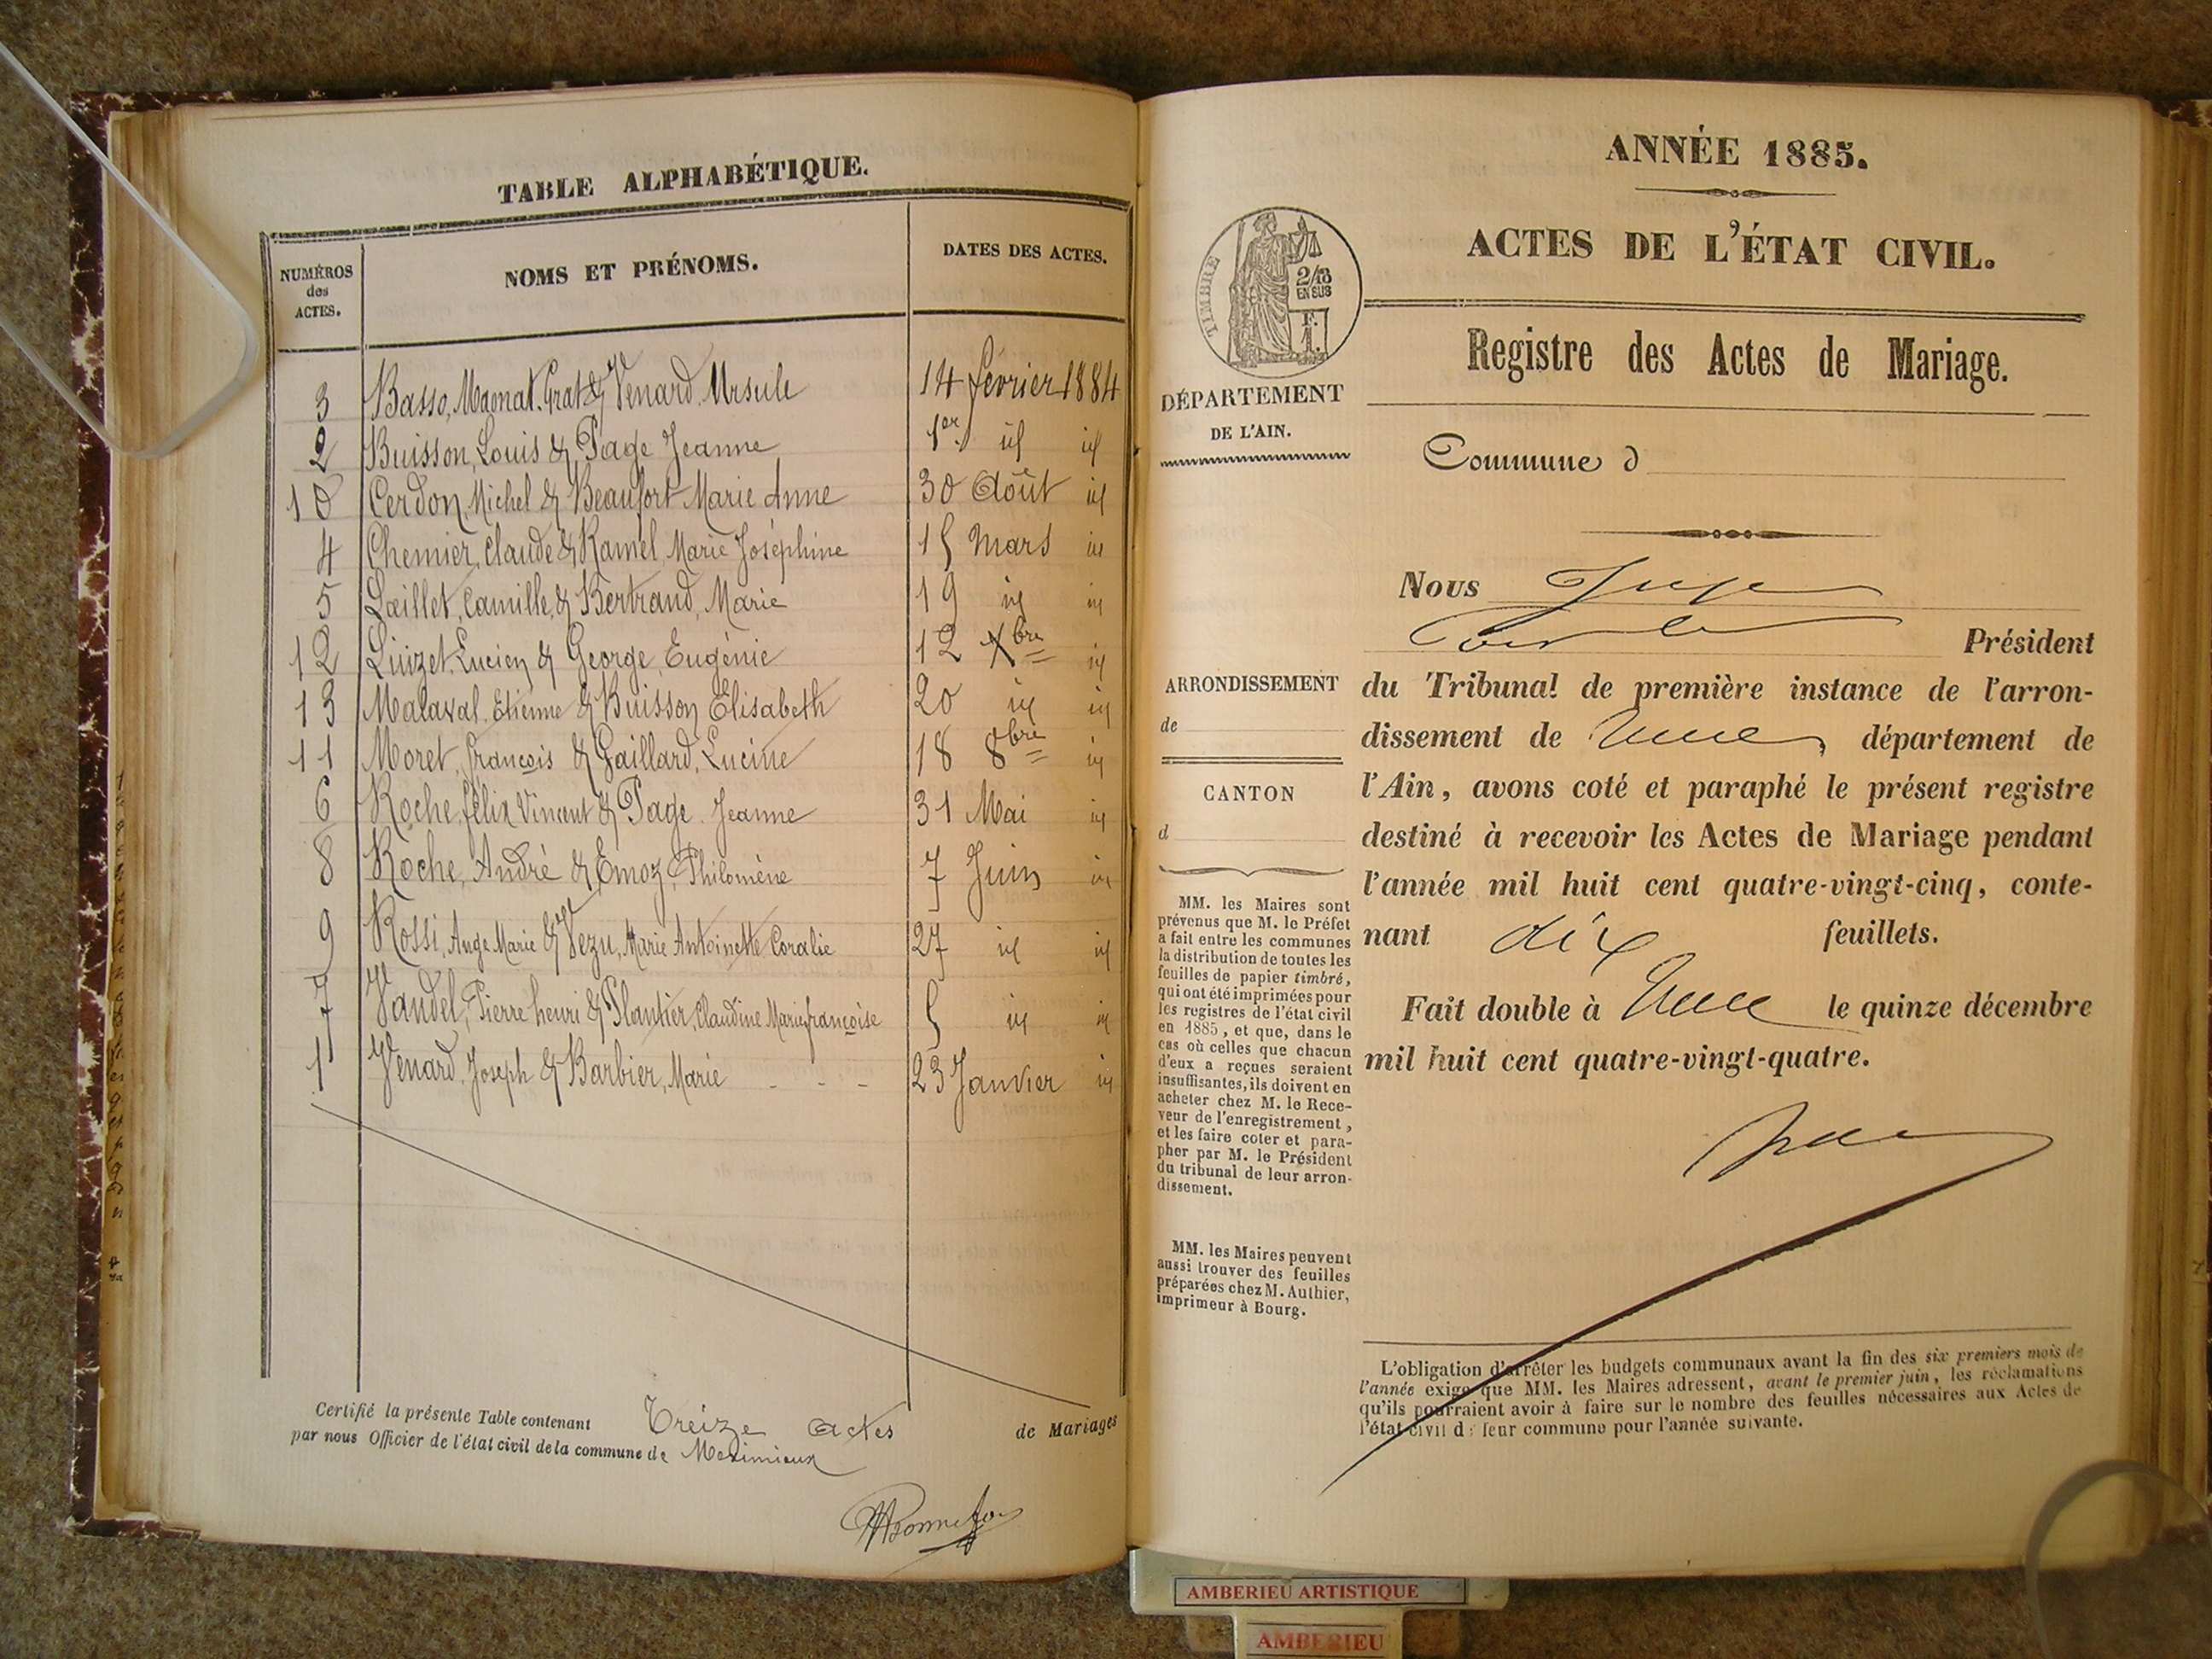 TABLE ALPHABÉTIQUE.
NUMÉROS des ACTES. NOMS ET PRÉNOMS. DATES DES ACTES.
3 Basso, Magnat Grat & Venard Ursule 14 février 1884
2 Buisson, Louis & Page Jeanne 1er id id
10 Cerdon, Michel & Beaufort Marie Anne 30 Août id
4 Chemier, Claude & Ramel, Marie Joséphine 15 Mars id
5 Laillet, Camille, & Bertrand, Marie 19 id id
12 Luizet, Lucien & George, Eugénie 12 Xbre id
13 Malaval, Etienne & Buisson Elisabeth 20 id id
11 Moret, François & Gaillard, Lucine 18 8bre id
6 Roche, félix Vincent & Page Jeanne 31 Mai id
8 Roche, André & Emoz, Philomène 7 Juin id
9 Rossi, Ange Marie & Vezu, Marie Antoinette Coralie 27 id id
7 Vandel, Pierre henri & Plantier, Claudine Marie françoise 5 id id
1 Venard, Joseph & Barbier, Marie - - - 23 Janvier id
Certifié la présente Table contenant Treize actes de Mariages
par nous Officier de l'état civil de la commune de Meximieux
ANNÉE 1885.
ACTES DE L'ÉTAT CIVIL.
TIMBRE
2/10
EN SUS
F.
1.
Registre des Actes de Mariage.
DÉPARTEMENT
DE L'AIN.
Commune d
Nous Juge
Pour le Président
du Tribunal de première instance de l'arron-
dissement de département de
l'Ain, avons coté et paraphé le présent registre
destiné à recevoir les Actes de Mariage pendant
l'année mil huit cent quatre-vingt-cinq, conte-
nant dix feuillets.
Fait double à le quinze décembre
mil huit cent quatre-vingt-quatre.
ARRONDISSEMENT
de
CANTON
d
MM. les Maires sont
prévenus que M. le Préfet
a fait entre les communes
la distribution de toutes les
feuilles de papier timbré,
qui ont été imprimées pour
les registres de l'état civil
en 1885, et que, dans le
cas où celles que chacun
d'eux a reçues seraient
insuffisantes, ils doivent en
acheter chez M. le Rece-
veur de l'enregistrement,
et les faire coter et para-
pher par M. le Président
du tribunal de leur arron-
dissement.
MM. les Maires peuvent
aussi trouver des feuilles
préparées chez M. Authier,
imprimeur à Bourg.
L'obligation d'arrêter les budgets communaux avant la fin des six premiers mois de
l'année exige que MM. les Maires adressent, avant le premier juin, les réclamations
qu'ils pourraient avoir à faire sur le nombre des feuilles nécessaires aux Actes de
l'état civil de leur commune pour l'année suivante.
AMBERIEU ARTISTIQUE
AMBERIEU